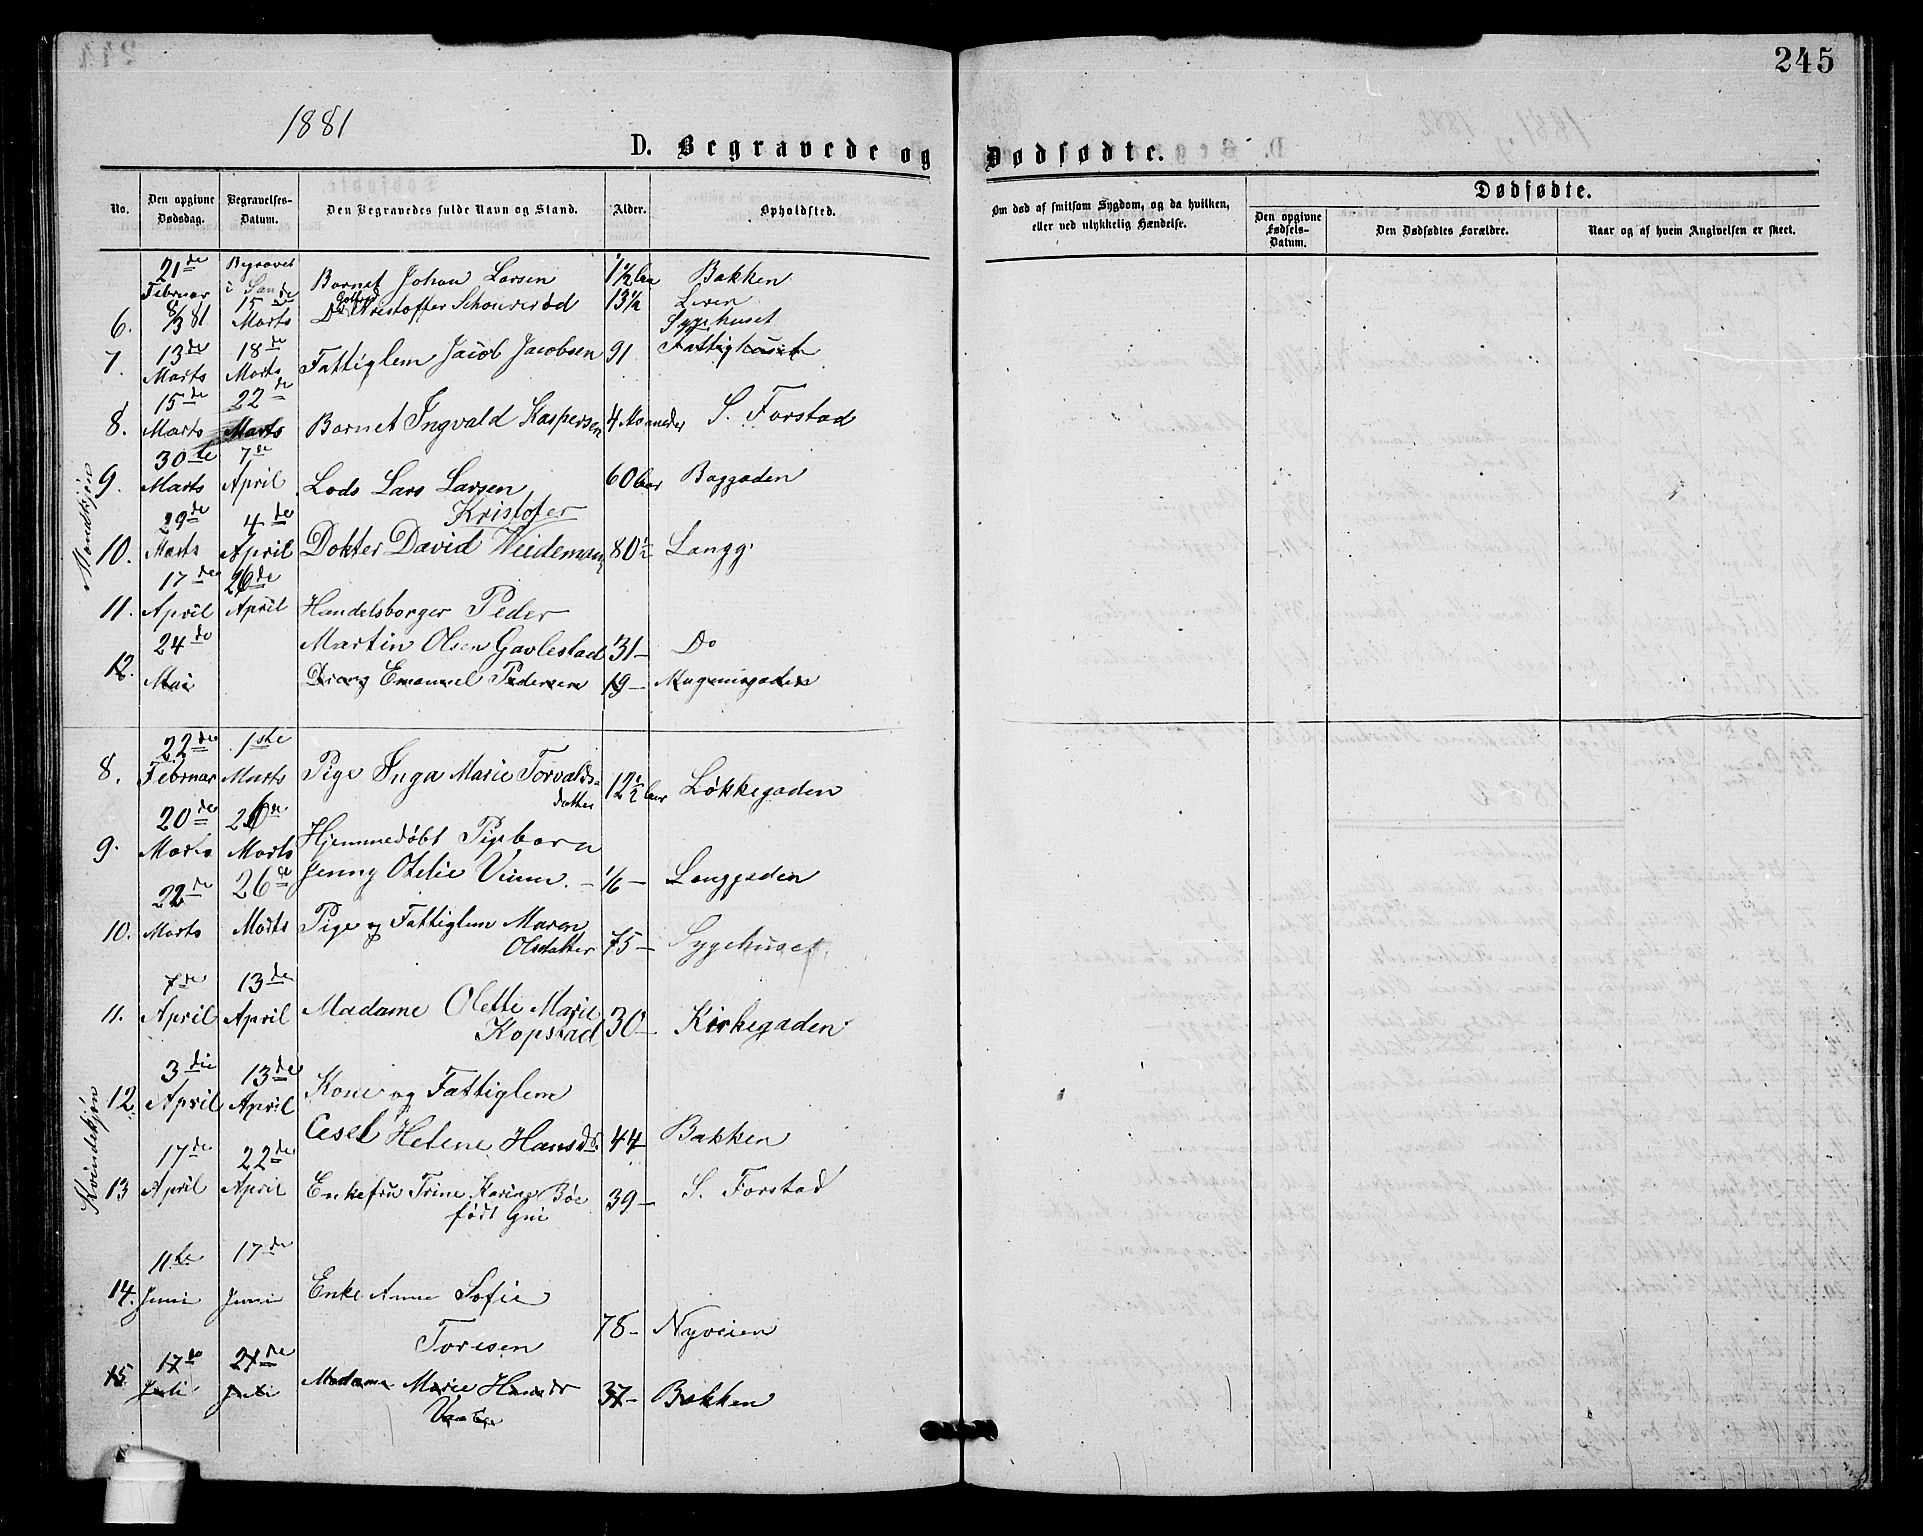 245
1881
D. Begravede og Dødfødte.
No.
Den opgivne Dødsdag.
Begravelses-Datum.
Den Begravedes fulde Navn og Stand.
Alder.
Opholdsted.
Om død af smitsom Sygdom, og da hvilken, eller ved ulykkelig Hændelse.
Dødfødte.
Den opgivne Fødsels-Datum.
Den Dødfødtes Forældre.
Naar og af hvem Angivelsen er skeet.
Mandkjøn
21de Februar Begravet i Sande Barnet Johan Larsen 1½ Aar Bakken
6. 8/3 81 15de Marts Do Kristoffer Schouverød 13½ Leren
Sygehuset
7. 13de Marts 18de Marts Fattiglem Jacob Jacobsen 91 Fattighuset
8. 15de Marts 22de Marts Barnet Ingvald Kaspersen 4 Maaneder S. Forstad
9. 30te Marts 7de April Lods Lars Larsen 60 Aar Baggaden
Kristofer
10. 29de Marts 4de April Dokter David Weidemann 80½ Langg.
11. 17de April 26de April Handelsborger Peder
Martin Olsen Gavlestad 31 - Do
12. 24de Mai Dreng Emanuel Pedersen 19 -
Kvindekjøn
8. 22de Februar 1ste Marts Pige Inga Marie Torvalds-
datter 12½ Aar Løkkegaden
9. 20de Marts 26de Marts Hjemmedøbt Pigebarn
Jenny Otelie - 1/6 - Langgaden
10. 22de Marts 26de Marts Pige og Fattiglem Maren
Olsdatter 75 - Sygehuset
11. 7de April 13de April Madame Olette Marie
Kopstad 30 - Kirkegaden
12. 3die April 13de April Kone og Fattiglem
Helene Hansd. 44 Bakken
13 17de April 22de April Enkefru Trine Karine Bøe
født 39 - S. Forstad
14. 11te Juni 17de Juni Enke Anne Sofie
Toresen 78 - Nyveien
15 17de Juli 21de Juli Madame Marie Hansdr
37 - Bakken